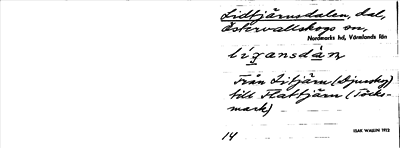 Lidtjärnsdalen, dal,
Östervallskogs sn,
Nordmarks hd, Värmlands län
Från Litjärn (Djuskog)
till Flattjärn (Töcks-
mark)
14
ISAK WALLIN 1912